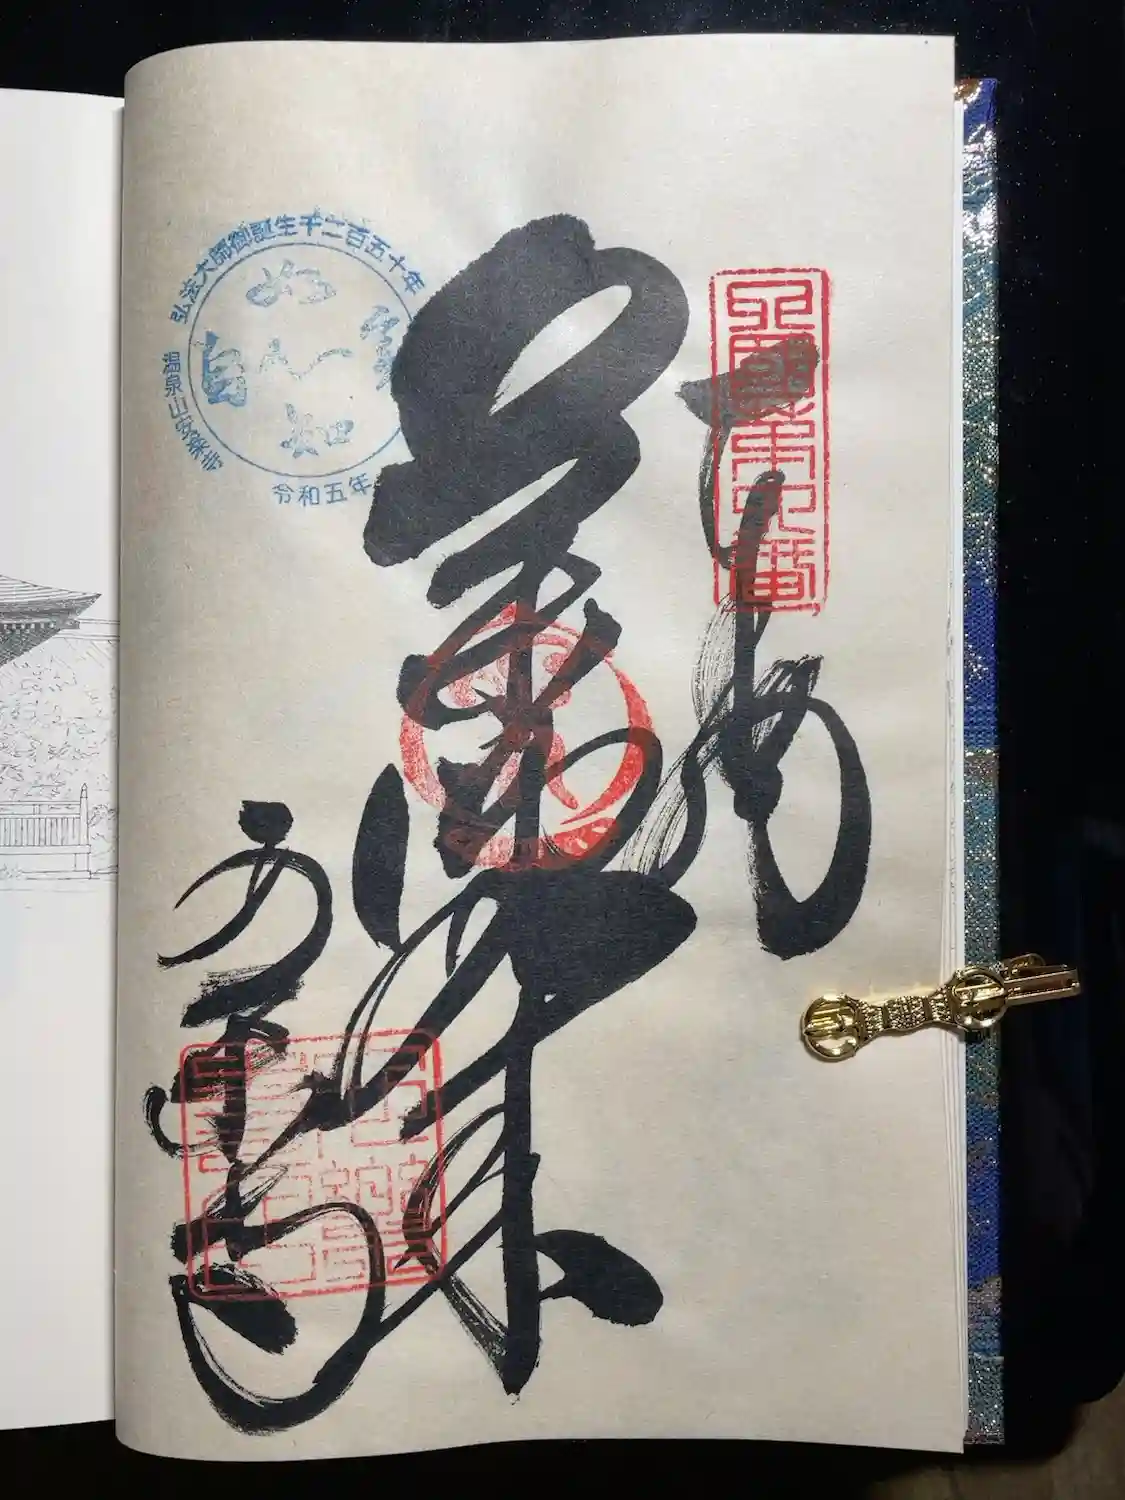 四國第六番
奉納
薬師如来
安楽寺
弘法大師御誕生千二百五十年
温泉山安楽寺
令和五年